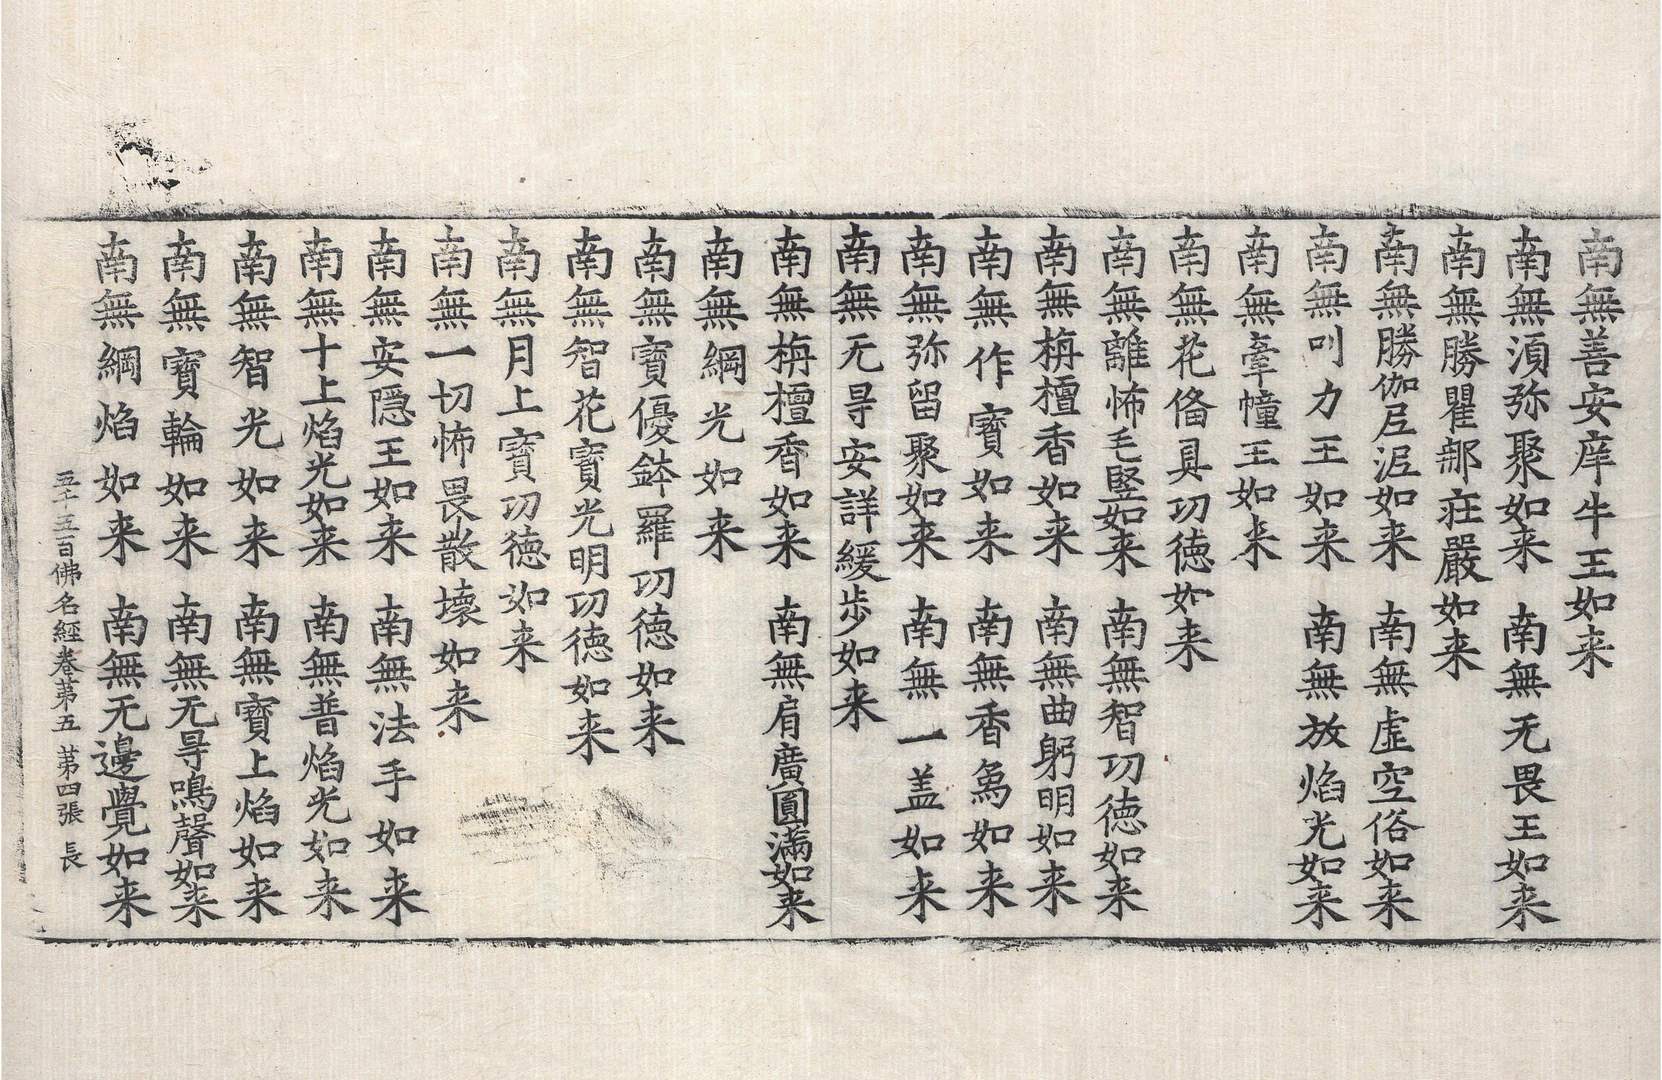 南無善安庠牛王如来
南無湏弥聚如来 南無无畏王如来
南無勝瞿郍荘嚴如来
南無勝伽㞐泥如来 南無虛空俗如来
南無叫力王如来 南無放焰光如来
南無牽幢王如来
南無花俻具㓛徳如来
南無離怖毛竪如来 南無智㓛徳如来
南無栴檀香如来 南無曲躬明如来
南無作寶如来 南無香象如来
南無弥留聚如来 南無一盖如来
南無无㝵安詳緩歩如来
南無栴檀香如来 南無肩廣圓滿如来
南無綱光如来
南無寶優鉢羅㓛徳如来
南無智花寶光明㓛徳如来
南無月上寶㓛徳如来
南無一切怖畏散壞如来
南無安隱王如来 南無法手如来
南無十上焰光如来 南無普焰光如来
南無智光如来 南無寶上焰如来
南無寶輪如来 南無无㝵鳴聲如来
南無綱焰如来 南無无邊覺如来
五千五百佛名經卷苐五 苐四張 長